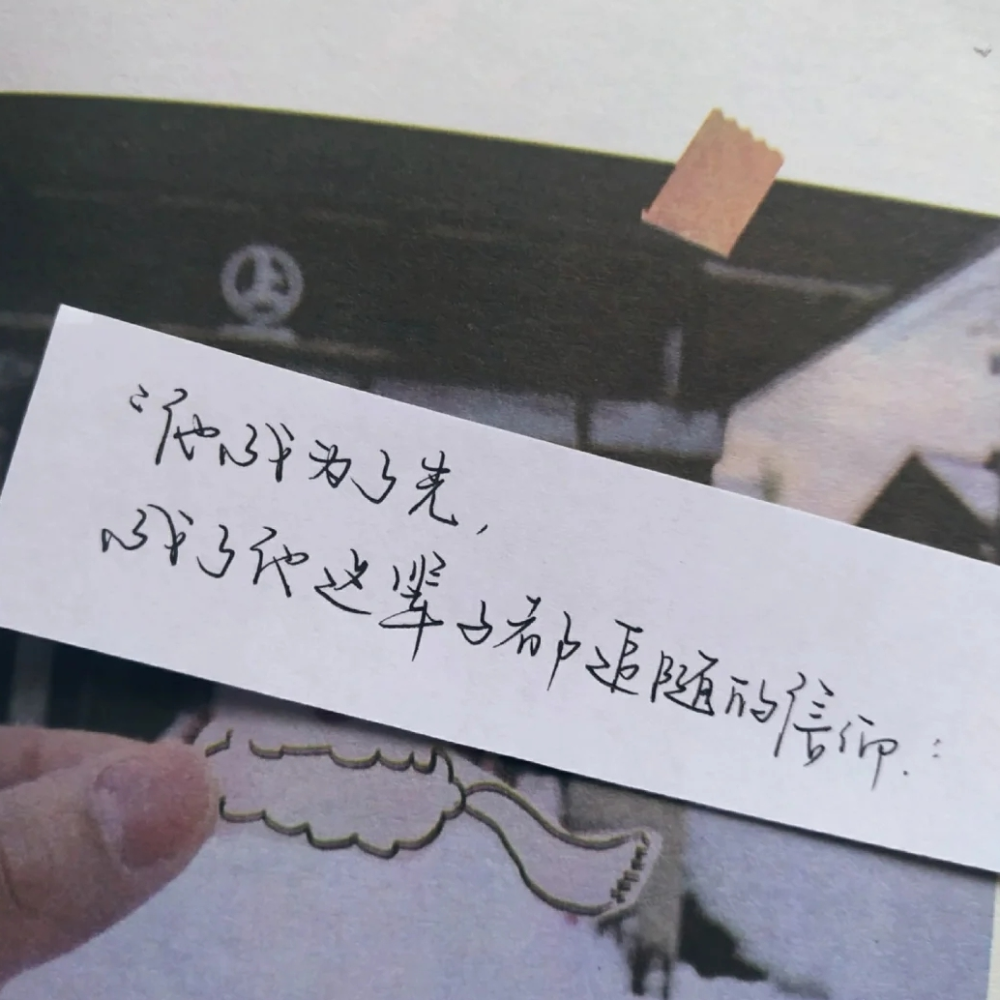 “他成为了光,
成了他这辈子都追随的信仰.”
上